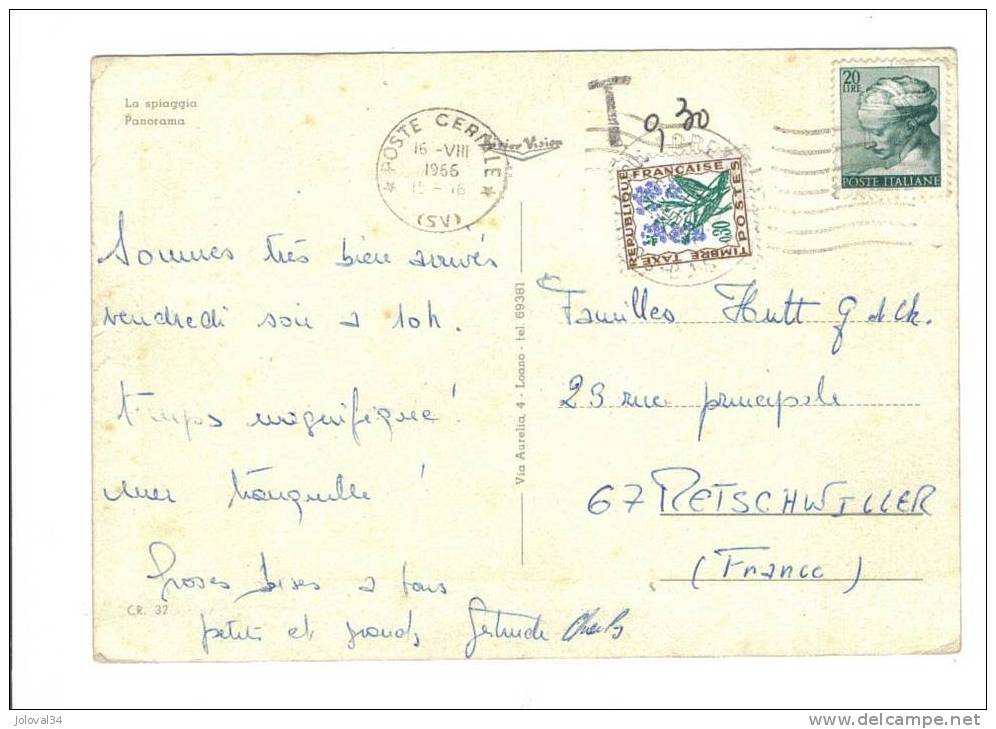 La spiaggia
Panorama
POSTE CERIALE
16 -VIII
1966
15 - 16
(SV)
T
0,30
20
LIRE
POSTE ITALIANE
REPUBLIQUE FRANÇAISE
POSTES
TIMBRE TAXE
0,30
Sommes très bien arrivés
vendredi soir a 10h.
temps magnifique !
mer tranquille !
Groses bises a tous
petits et grands, Gertrude Charles
CR. 32
Via Aurelia, 4 - Loano - tel. 69381
Familles Hutt G et Ch.
23 rue principale
67 RETSCHWILLER
(France)
joloval34
www.delcampe.net